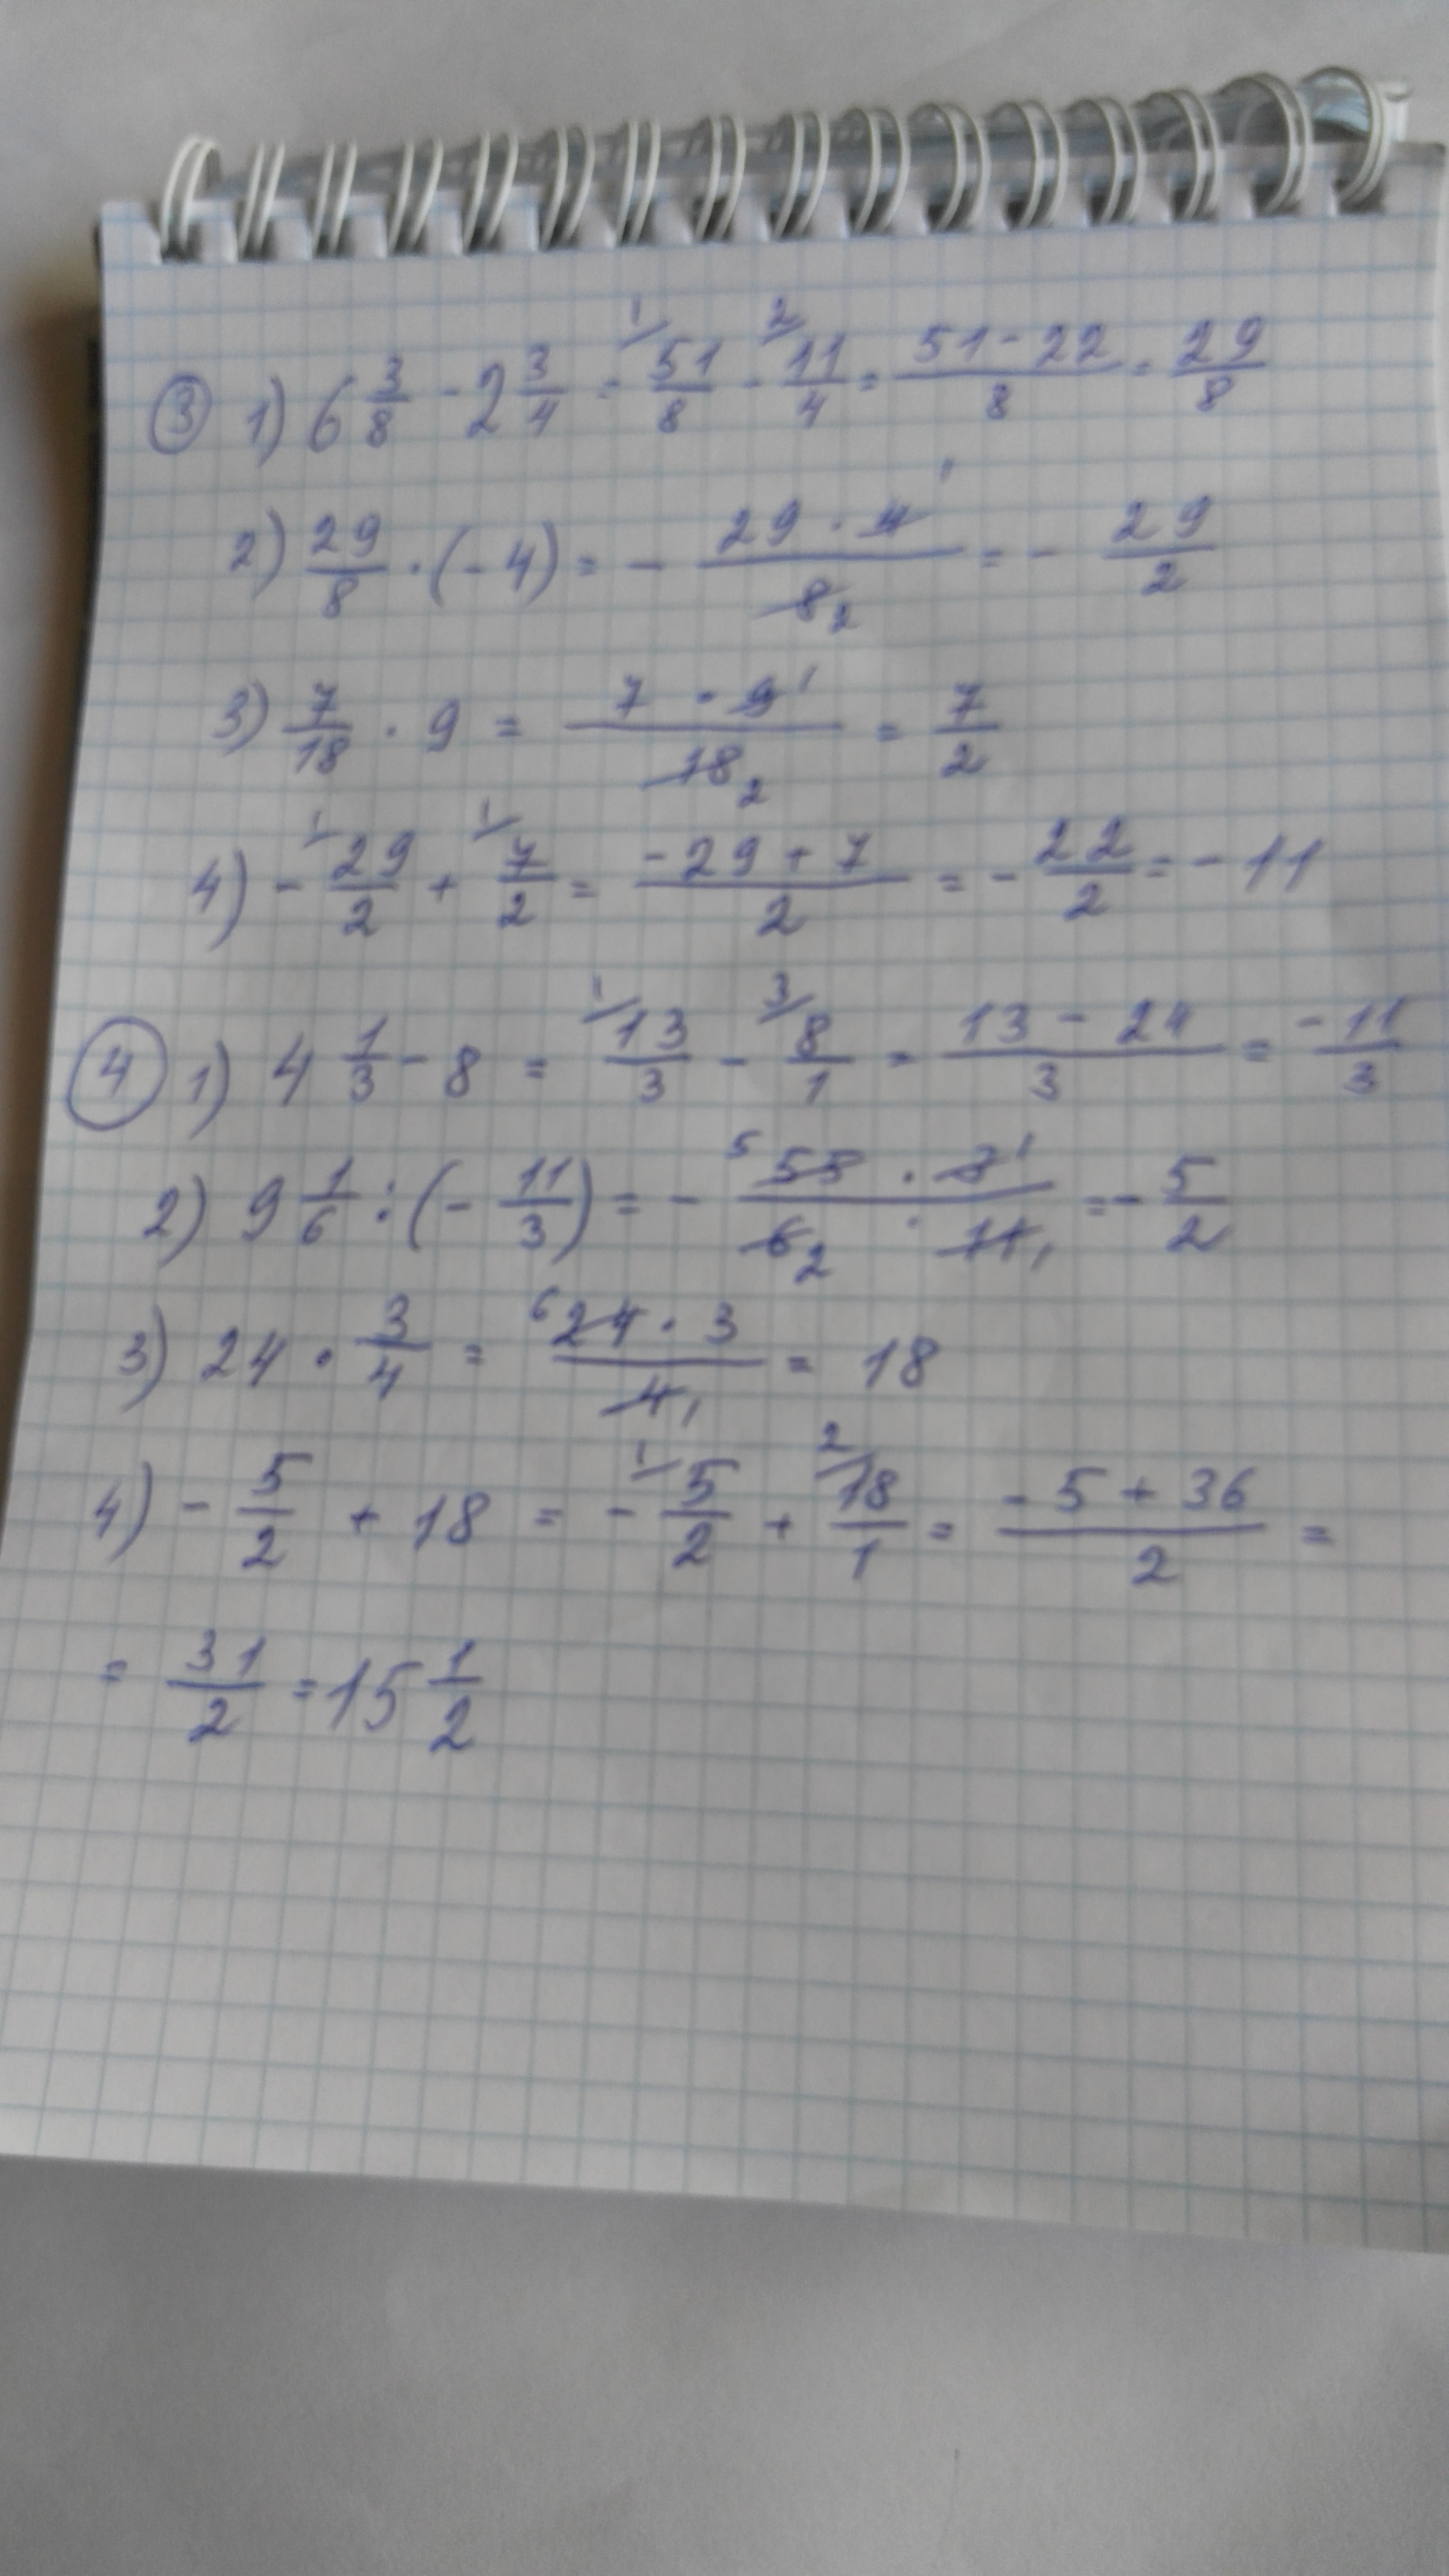 ③ 1) 6 3/8 - 2 3/4 = 1/ 51/8 - 2/ 11/4 = (51-22)/8 = 29/8
2) 29/8 · (-4) = - (29 · 4 1)/(8 2) = - 29/2
3) 7/18 · 9 = (7 · 9 1)/(18 2) = 7/2
4) - 1/ 29/2 + 1/ 7/2 = (-29+7)/2 = - 22/2 = -11
④ 1) 4 1/3 - 8 = 1/ 13/3 - 3/ 8/1 = (13-24)/3 = -11/3
2) 9 1/6 : (- 11/3) = - (5 55 · 3 1)/(6 2 · 11 1) = - 5/2
3) 24 · 3/4 = (6 24 · 3)/(4 1) = 18
4) - 5/2 + 18 = - 1/ 5/2 + 2/ 18/1 = (-5+36)/2 =
= 31/2 = 15 1/2